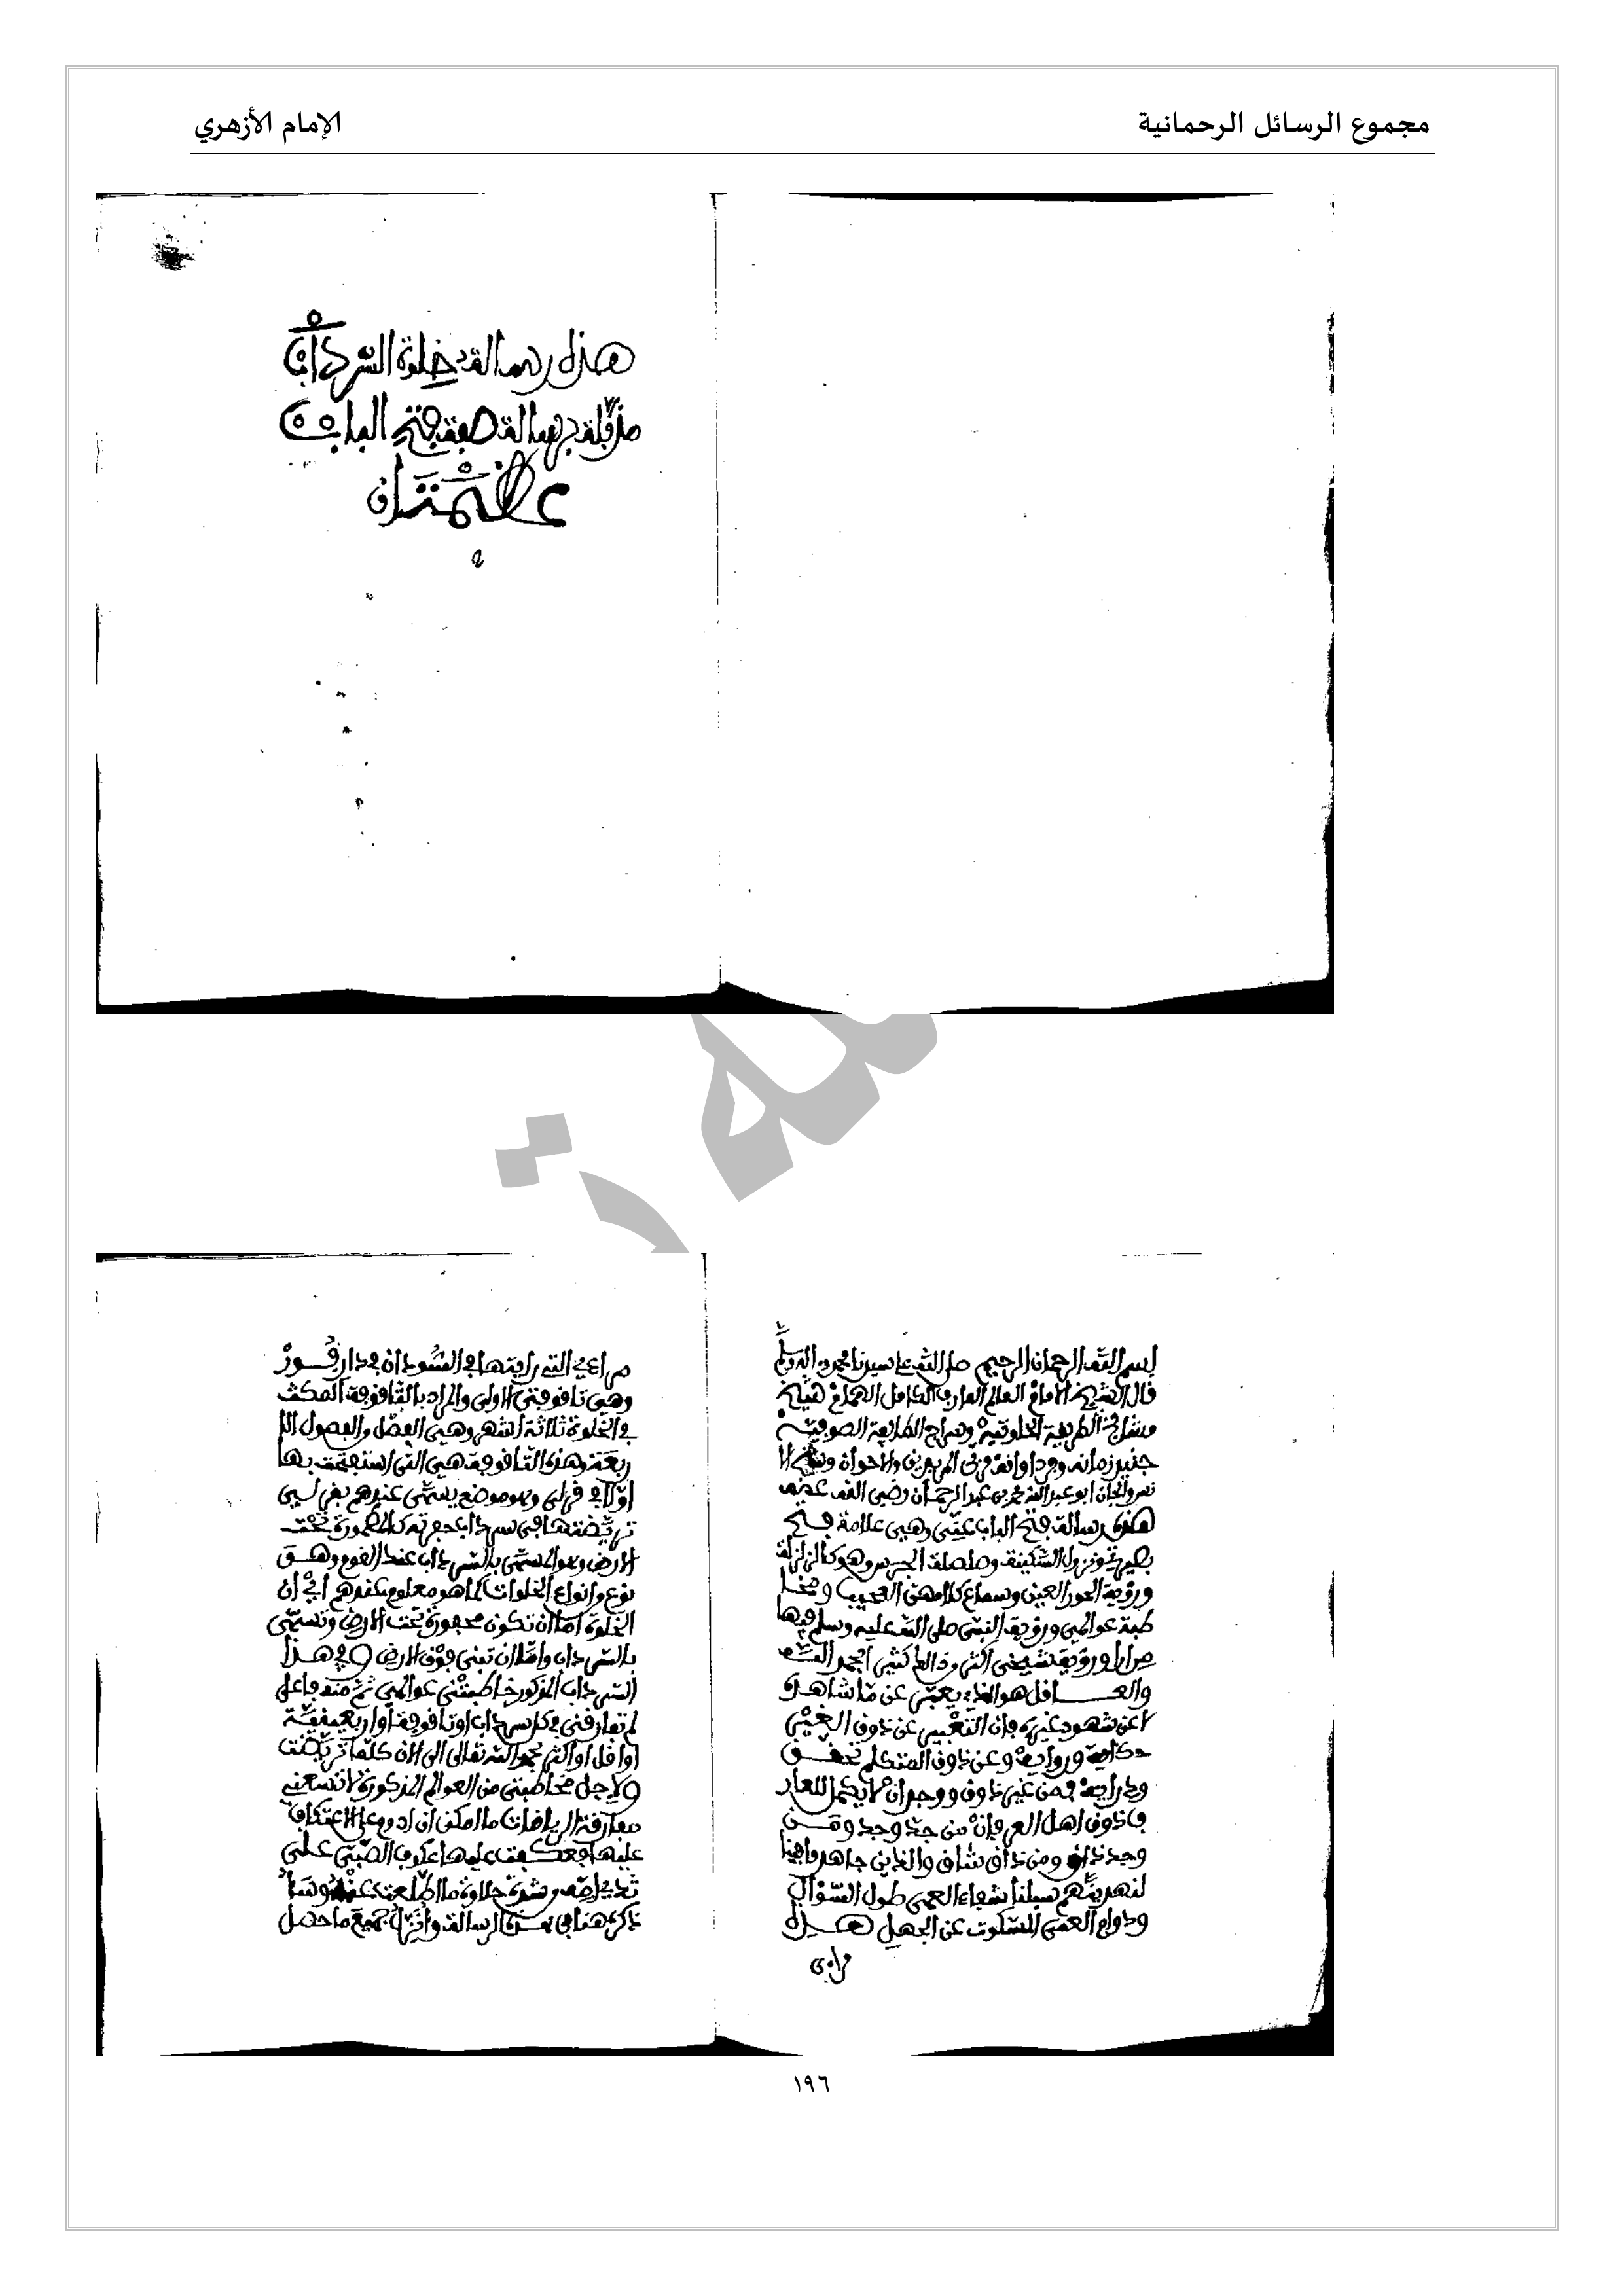 مجموع الرسائل الرحمانية
الإمام الأزهري
هذه رسالة خلوة السرداب
فتح الباب
بسم الله الرحمان الرحيم صلى الله على سيدنا محمد وءاله وسلم
قال الشيخ الامام العالم العارف الكامل الهمام شيخ
مشايخ الطريقة الخلوتية وسراج الطايفة الصوفية
جنيد زمانه وفريد اوانه مربي المريدين والاخوان وشيخ الا
نس والجان ابو عبد الله محمد بن عبد الرحمان رضي الله عنه
هذه رسالة فتح الباب عني وهي علامة فتح
بصيرتي ونزول السكينة وصلصلة الجرس وهو كالزلزلة
ورؤية الحور العين وسماع كلامهن العجيب ومخا
طبة عوالمي ورؤية النبي صلى الله عليه وسلم فيها
مرارا ورؤية شيخي اكثر من ذالك كثيرا بحمد الله
والعاقل هو الذي يعبر عن ما شاهده
لا عن شهود غيره فإن التعبير عن ذوق الغير
حكاية ورواية وعن ذوق المتكلم تحقيق
ودراية فمن غير ذوق ووجدان لا يحمل للعار
ف اذوق اهل العرفان من جد وجد ومن
وجد ذاق ومن ذاق شاق والذين جاهدوا فينا
لنهدينهم سبلنا شفاء العمى طول السؤال
ودوام العمى السكوت عن الجهل هذه
مراءي
مراءي التي رايتها في السودان في دار فور
وهي تافوقتي الاولى والمراد بالتافوقة المكث
في الخلوة ثلاثة اشهر وهي الفصل والفصول الا
ربعة وهذه التافوقة هي التي استفتحت بها
اولا في قرلي وهو موضع يسمى عندهم بقرلي
تريضتها في سرداب حفرته كالمطمورة تحت
الارض وهو المسمى بالسرداب عند القوم وهو
نوع من انواع الخلوات كما هو معلوم عندهم اي ان
الخلوة اما ان تكون محفورة تحت الارض وتسمى
بالسرداب واما ان تبنى فوق الارض وفي هذا
السرداب المذكور خاطبتني عوالمي ثم منه فاعلى
لم تفارقني في كل سرداب او تافوقة او اربعينية
او اقل او اكثر بحمد الله تعالى الى الان كلما تريضت
ولاجل مخاطبتي من العوالم المذكورة لا تسعني
مفارقة الرياضات ما امكن ان ادوم على الاعتكاف
عليها فعكفت عليها عكوف الصبي على
ثدي امه وشدة حلاوة ما اطلعت عنه وسا
ذكره هنا في هذه الرسالة واترك جميع ما حصل
١٩٦